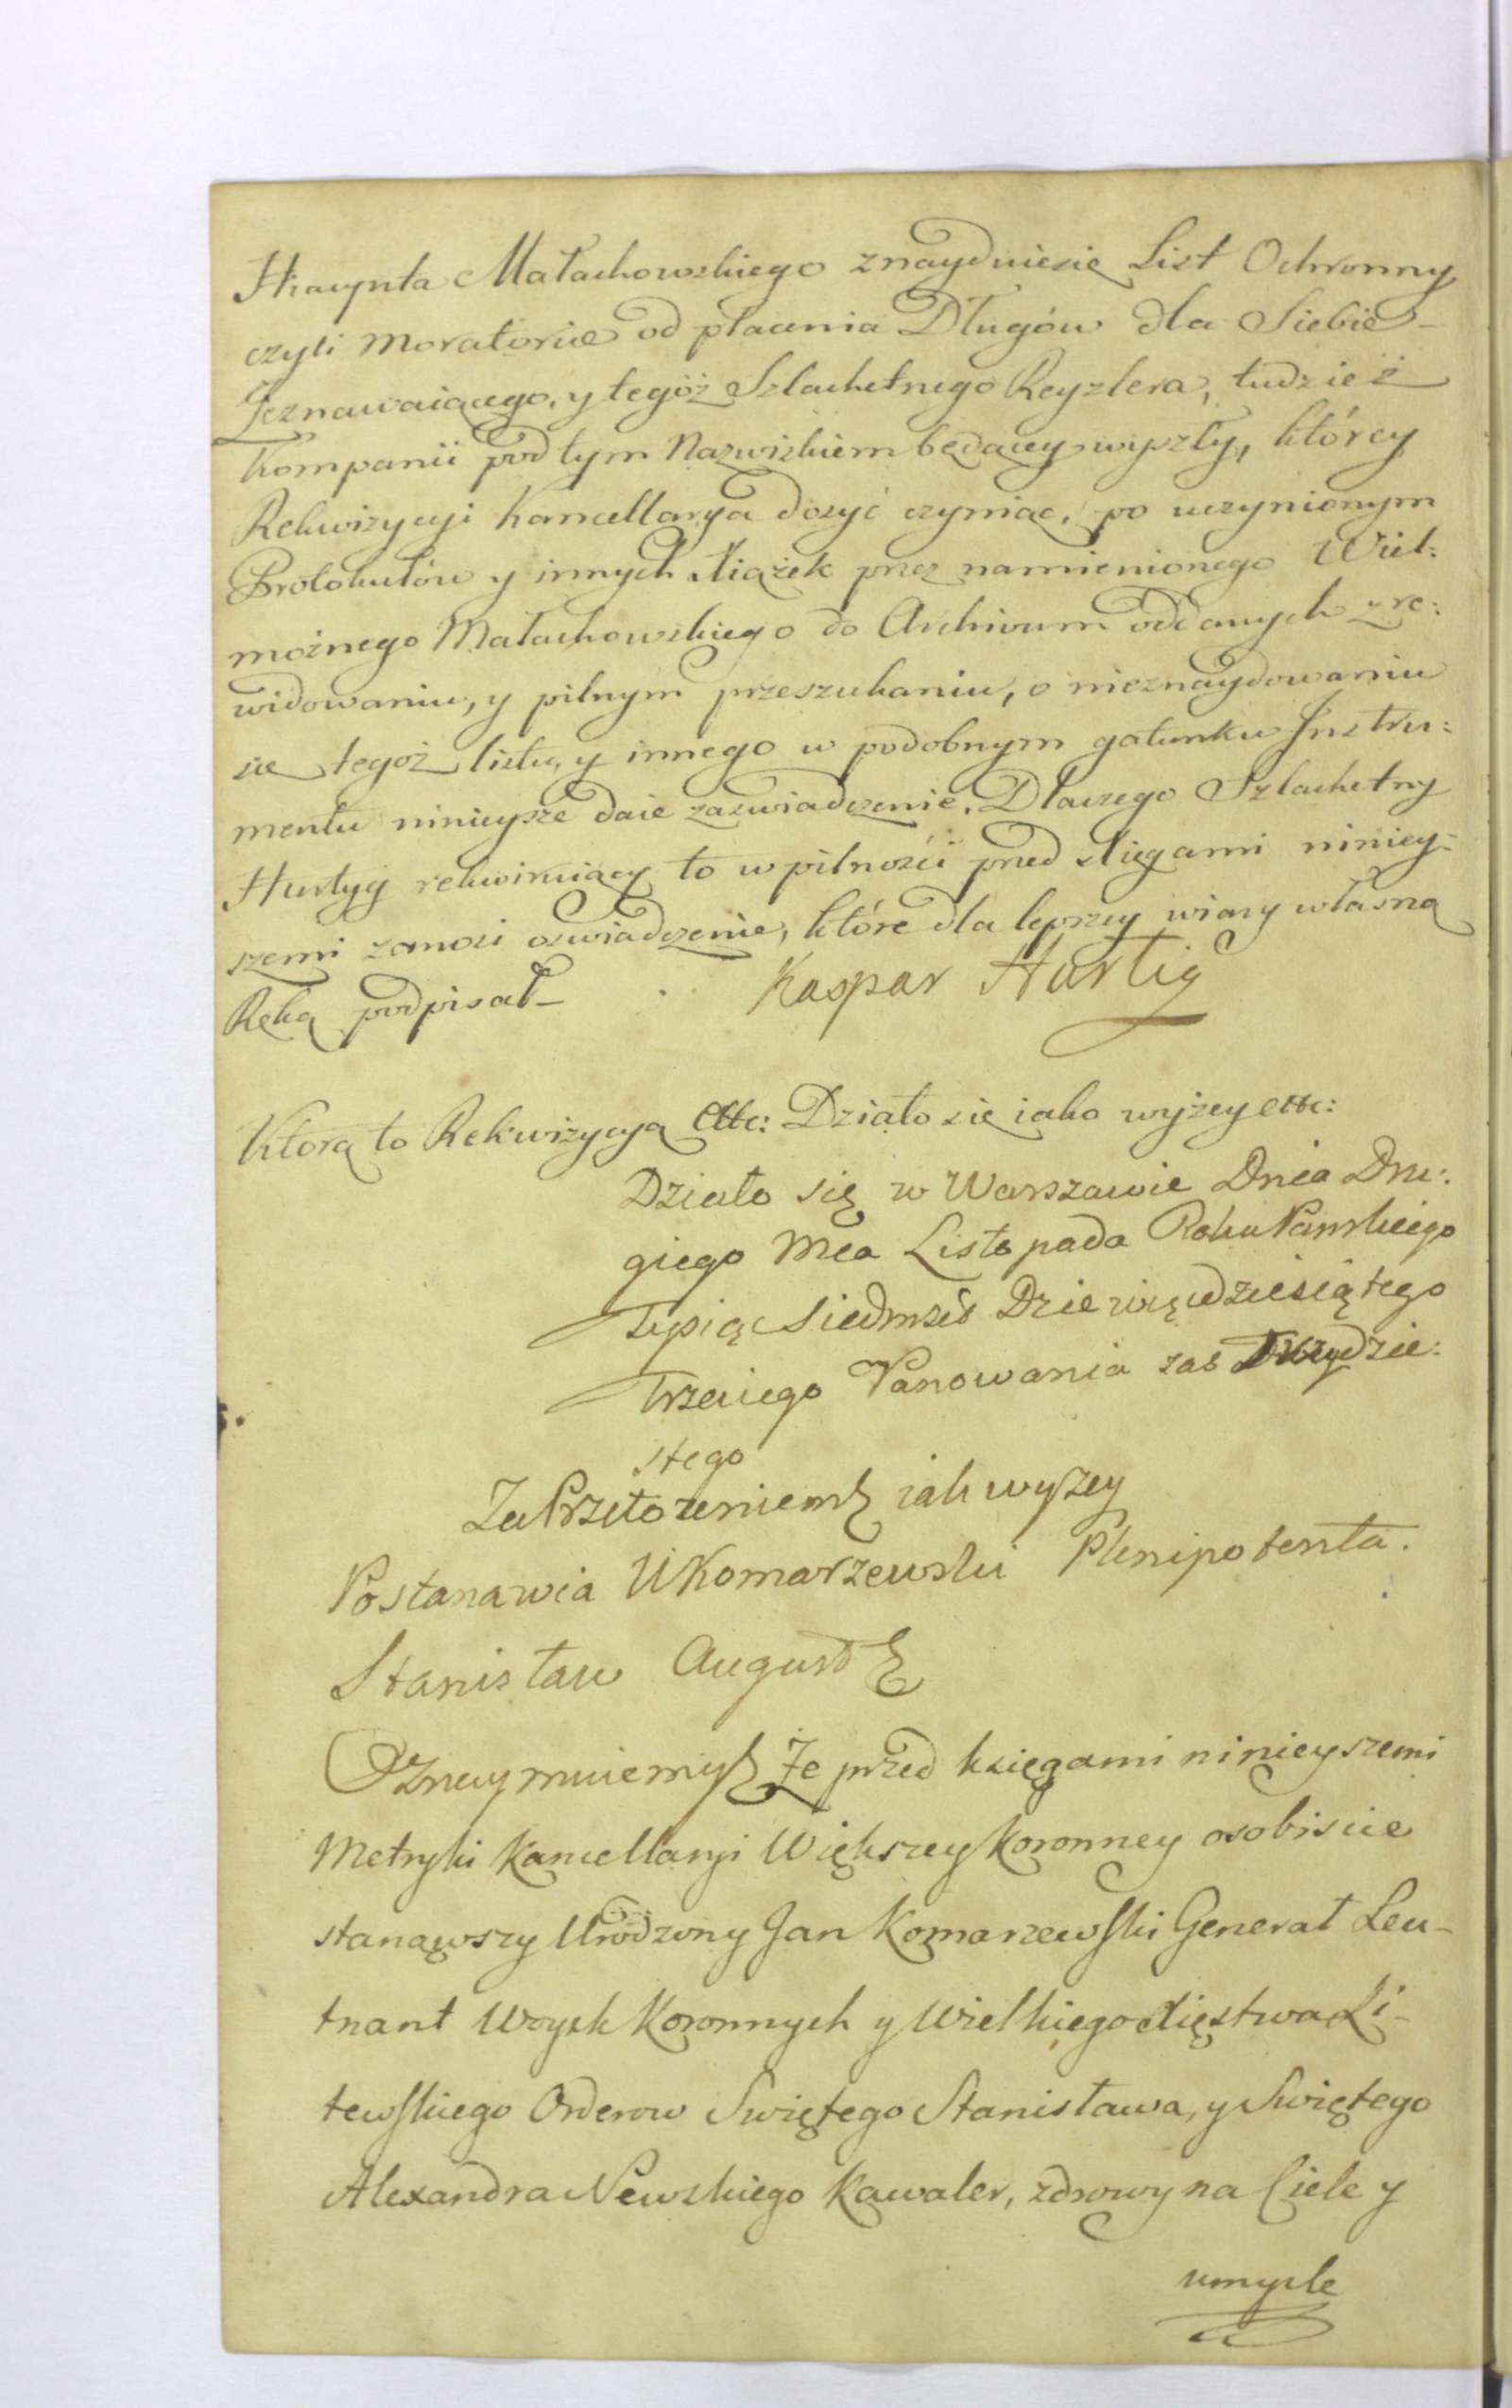 Hiacynta Małachowskiego znayduiesię List Ochronny
czyli Moratorium od płacenia Długów dla Siebie
Zeznawaiącego, y tegóż Szlachetnego Reyzlera, tudzież
Kompanii pod tym Nazwiskiem będącey wyszły, którey
Rekwizycyi Kancellarya dosyć czyniąc, po uczynionym
Protokułów y innych Xiążek przez namienionego Wiel:
możnego Małachowskiego do Archivum oddanych zre:
widowaniu, y pilnym przeszukaniu, o nieznaydowaniu
się tegoż listu, y innego w podobnym gatunku Instru:
mentu ninieysze daie zaswiadczenie. Dlaczego Szlachetny
Hurtyg rekwiruiący to w pilności przed Xięgami niniey:
szemi zanosi oswiadczenie, które dla lepszey wiary własną
Ręką podpisał – Kaspar Hurtig
Którą to Rekwizycyą Ettc: Działo się iako wyżey ettc:
Działo się w Warszawie Dnia Dru:
giego Mca Listopada Roku Pańskiego
Tysiąc Siedmset Dziewięcdziesiątego
Trzeciego Panowania zas Trzydzie:
stego
Za Przełożeniem iak wyżey
Postanawia U Komarzewski Plenipotenta.
Stanisław August
Oznaymuiemy Że przed księgami ninieyszemi
Metryki Kancellaryi Większey Koronney osobiscie
stanąwszy Urodzony Jan Komarzewski Generał Leu-
tnant Woysk Koronnych y Wielkiego Xięstwa Li-
tewskiego Orderow Swiętego Stanisława, y Swiętego
Alexandra Newskiego Kawaler, zdrowy na Ciele y
umysle